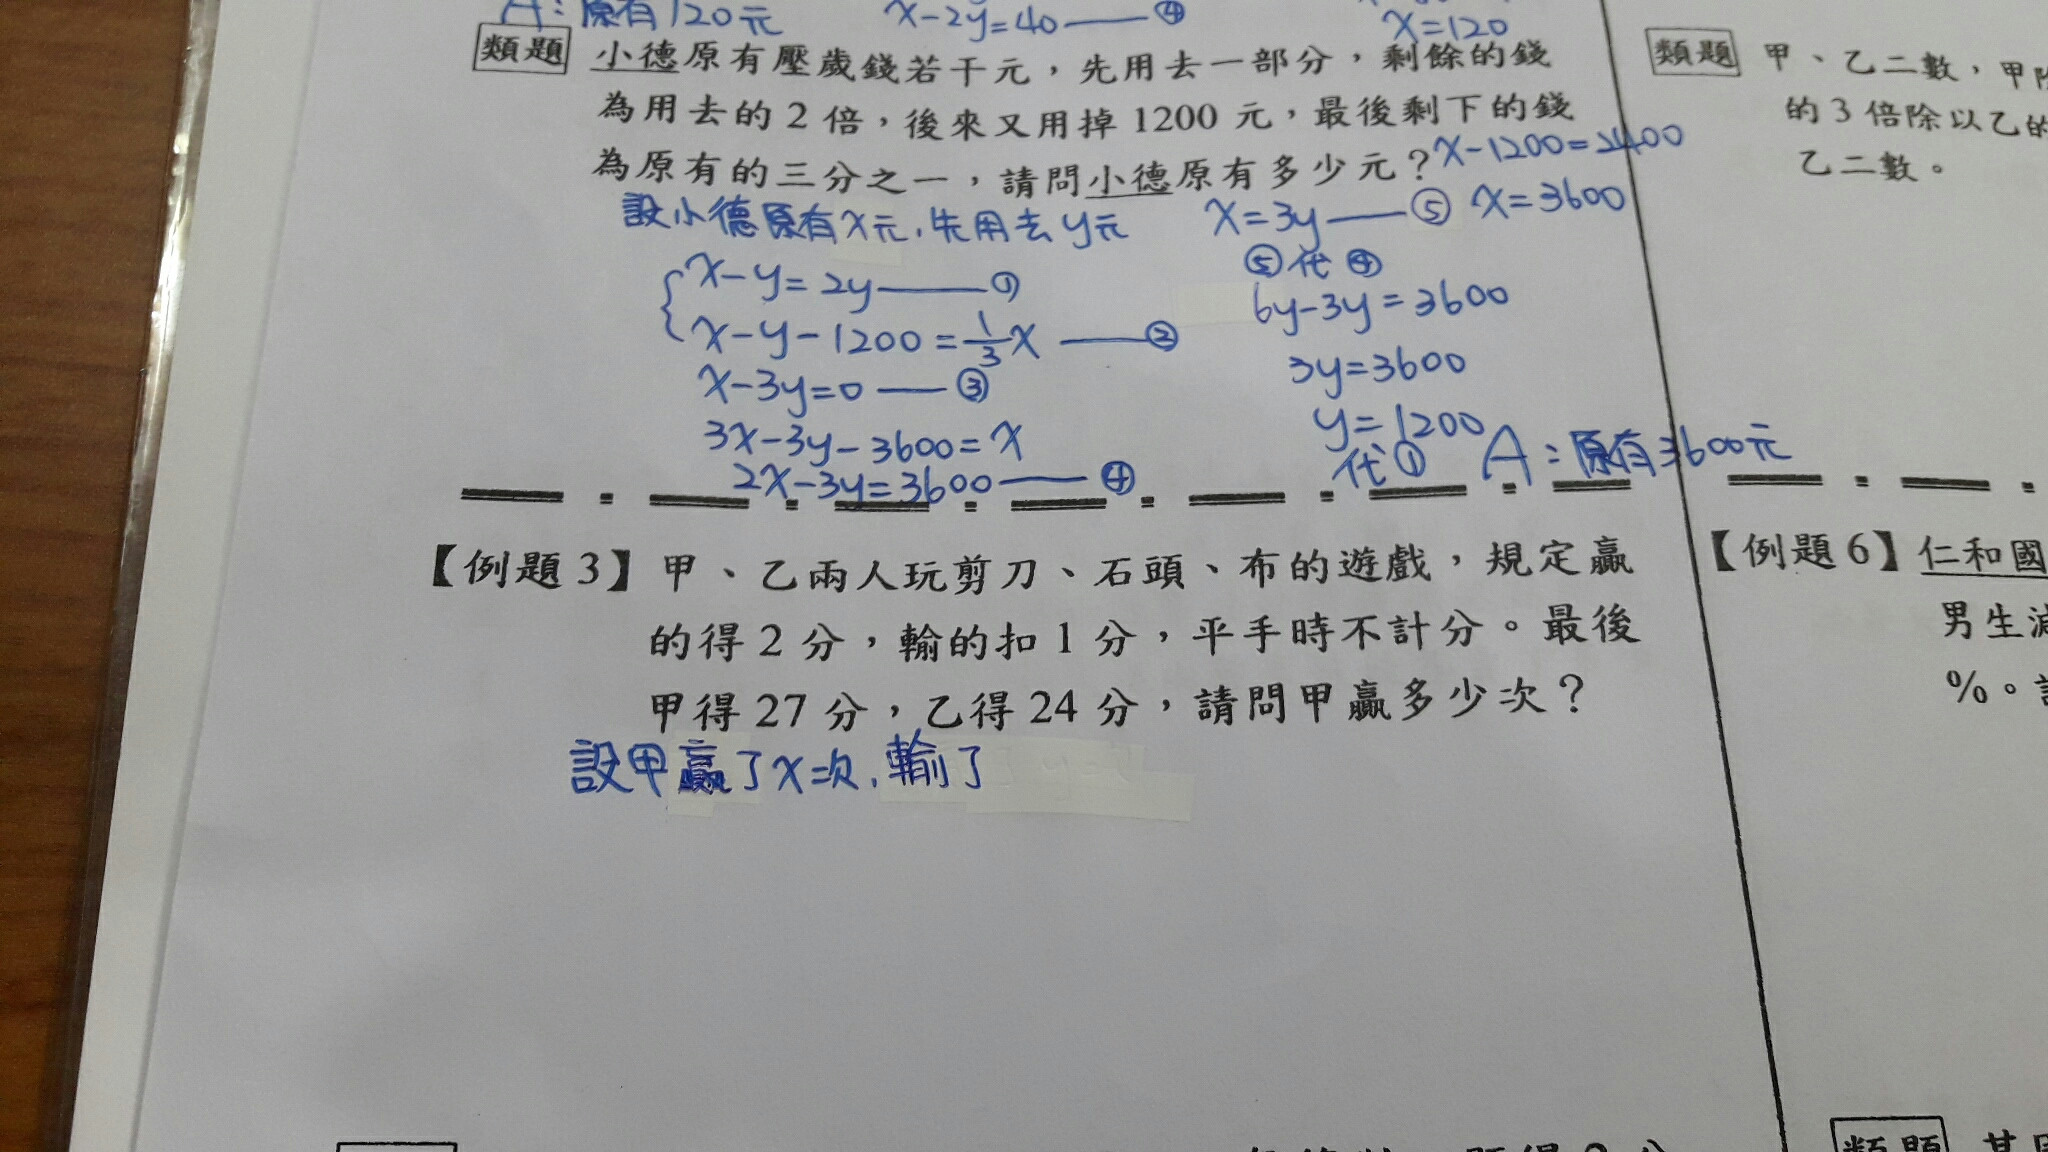 A：原有120元
x-2y=40——④
x=120
類題 小德原有壓歲錢若干元，先用去一部分，剩餘的錢
為用去的2倍，後來又用掉1200元，最後剩下的錢
為原有的三分之一，請問小德原有多少元？
設小德原有x元，先用去y元
x-y=2y——①
x-y-1200=1/3x——②
x-3y=0——③
3x-3y-3600=x
2x-3y=3600——④
x=3y——⑤
⑤代④
6y-3y=3600
3y=3600
y=1200
代①
x-1200=2400
x=3600
A：原有3600元
【例題3】甲、乙兩人玩剪刀、石頭、布的遊戲，規定贏
的得2分，輸的扣1分，平手時不計分。最後
甲得27分，乙得24分，請問甲贏多少次？
設甲贏了x次，輸了
類題 甲、乙二數，甲
的3倍除以乙的
乙二數。
【例題6】仁和國
男生
%。
類題